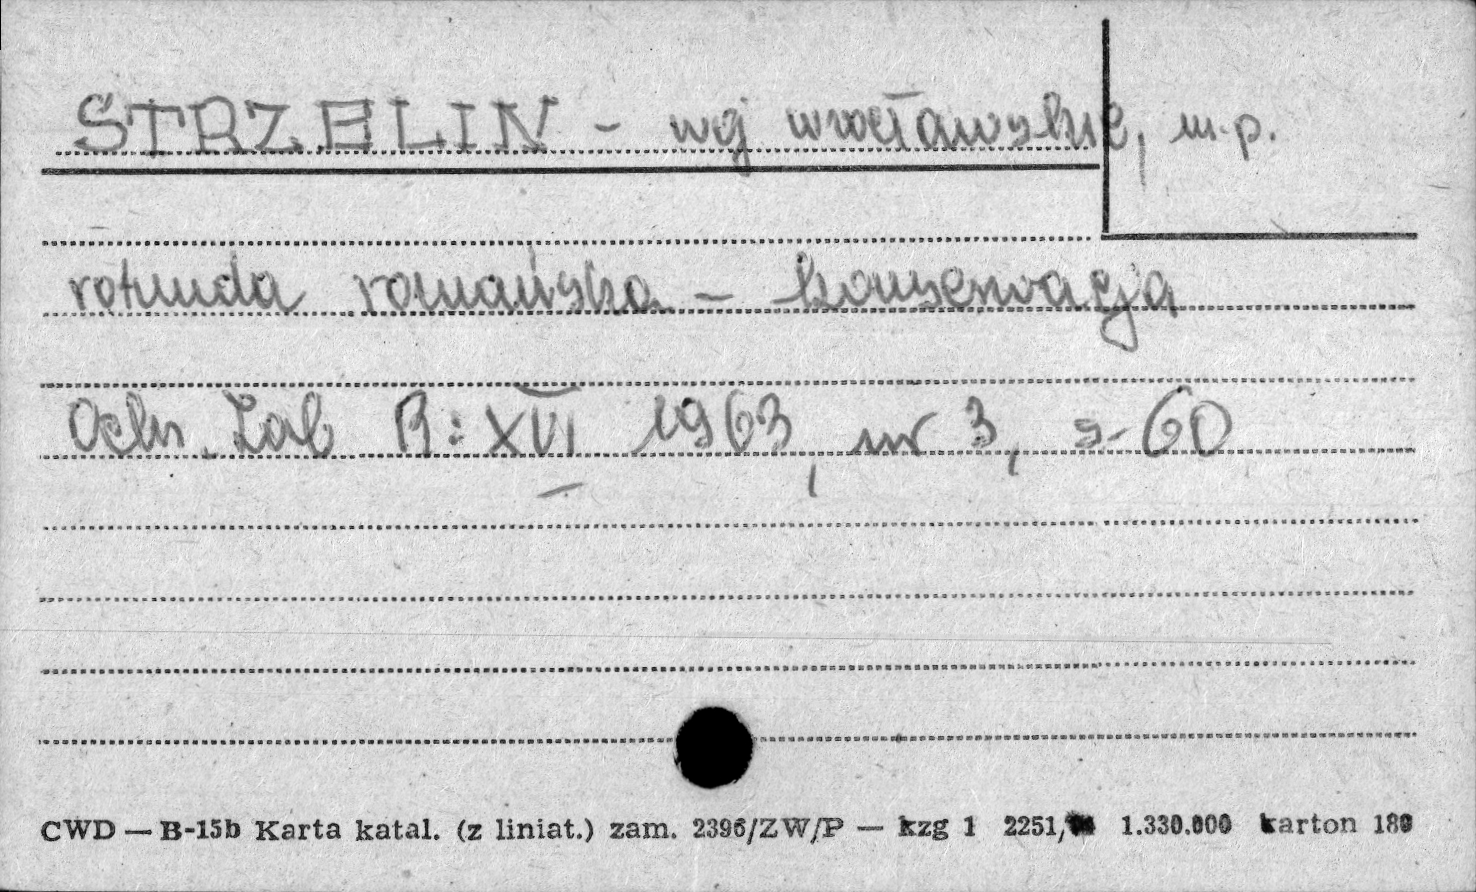 STRZELIN - woj wrocławskie, m.p.
rotunda romańska - konserwacja
Ochr. Zab R: XVI 1963, nr 3, s-60
CWD — B-15b Karta katal. (z liniat.) zam. 2396/ZW/P — kzg 1 2251/ 1.330.000 karton 180